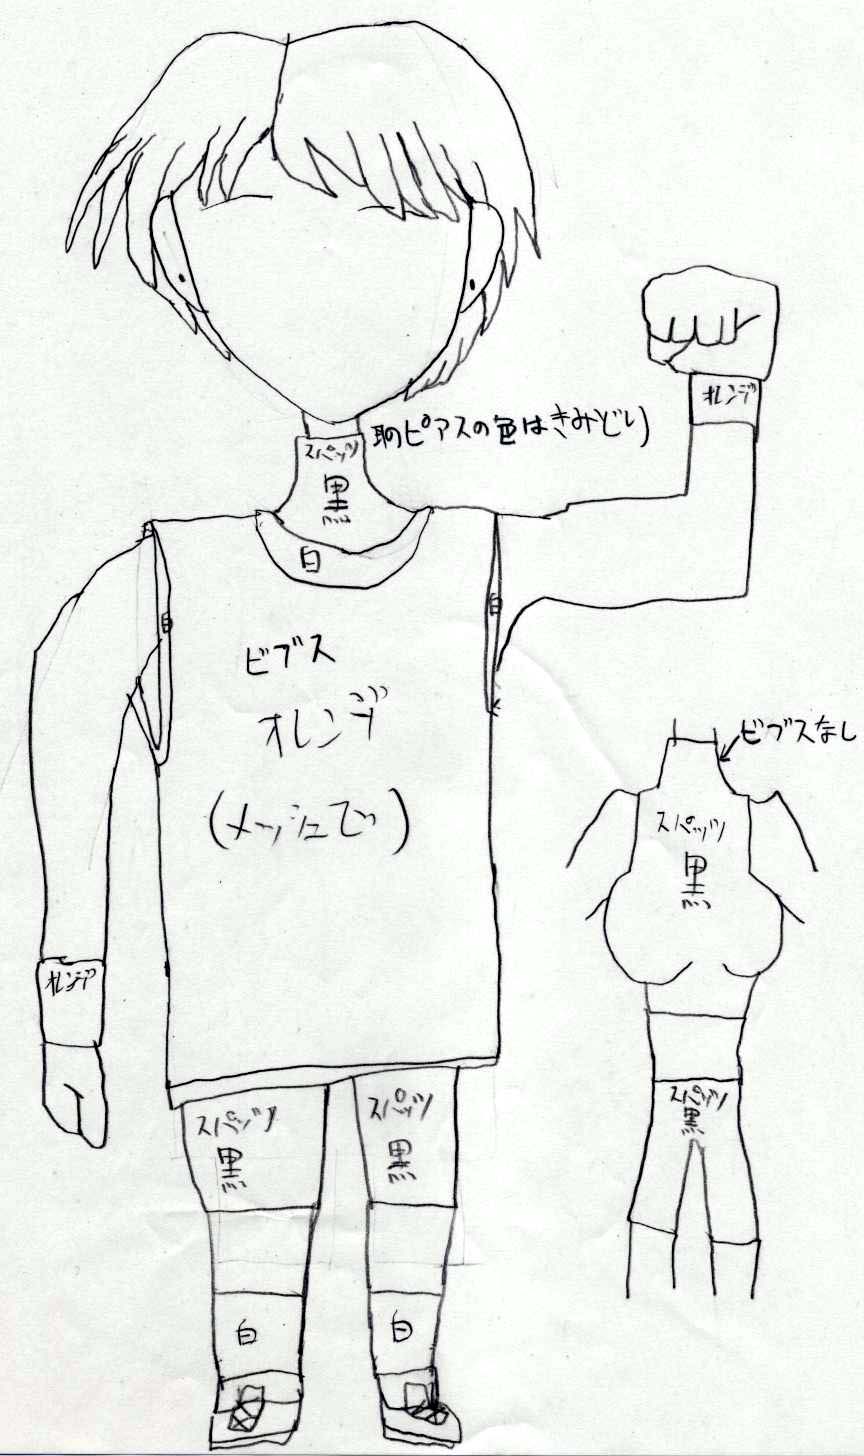 オレンヂ
耳のピアスの色はきみどり
スパッツ
黒
白
白
白
ビブス
オレンヂ
(メッシュでっ)
ビブスなし
スパッツ
黒
オレンヂ
スパッツ
黒
スパッツ
黒
スパッツ
黒
白
白